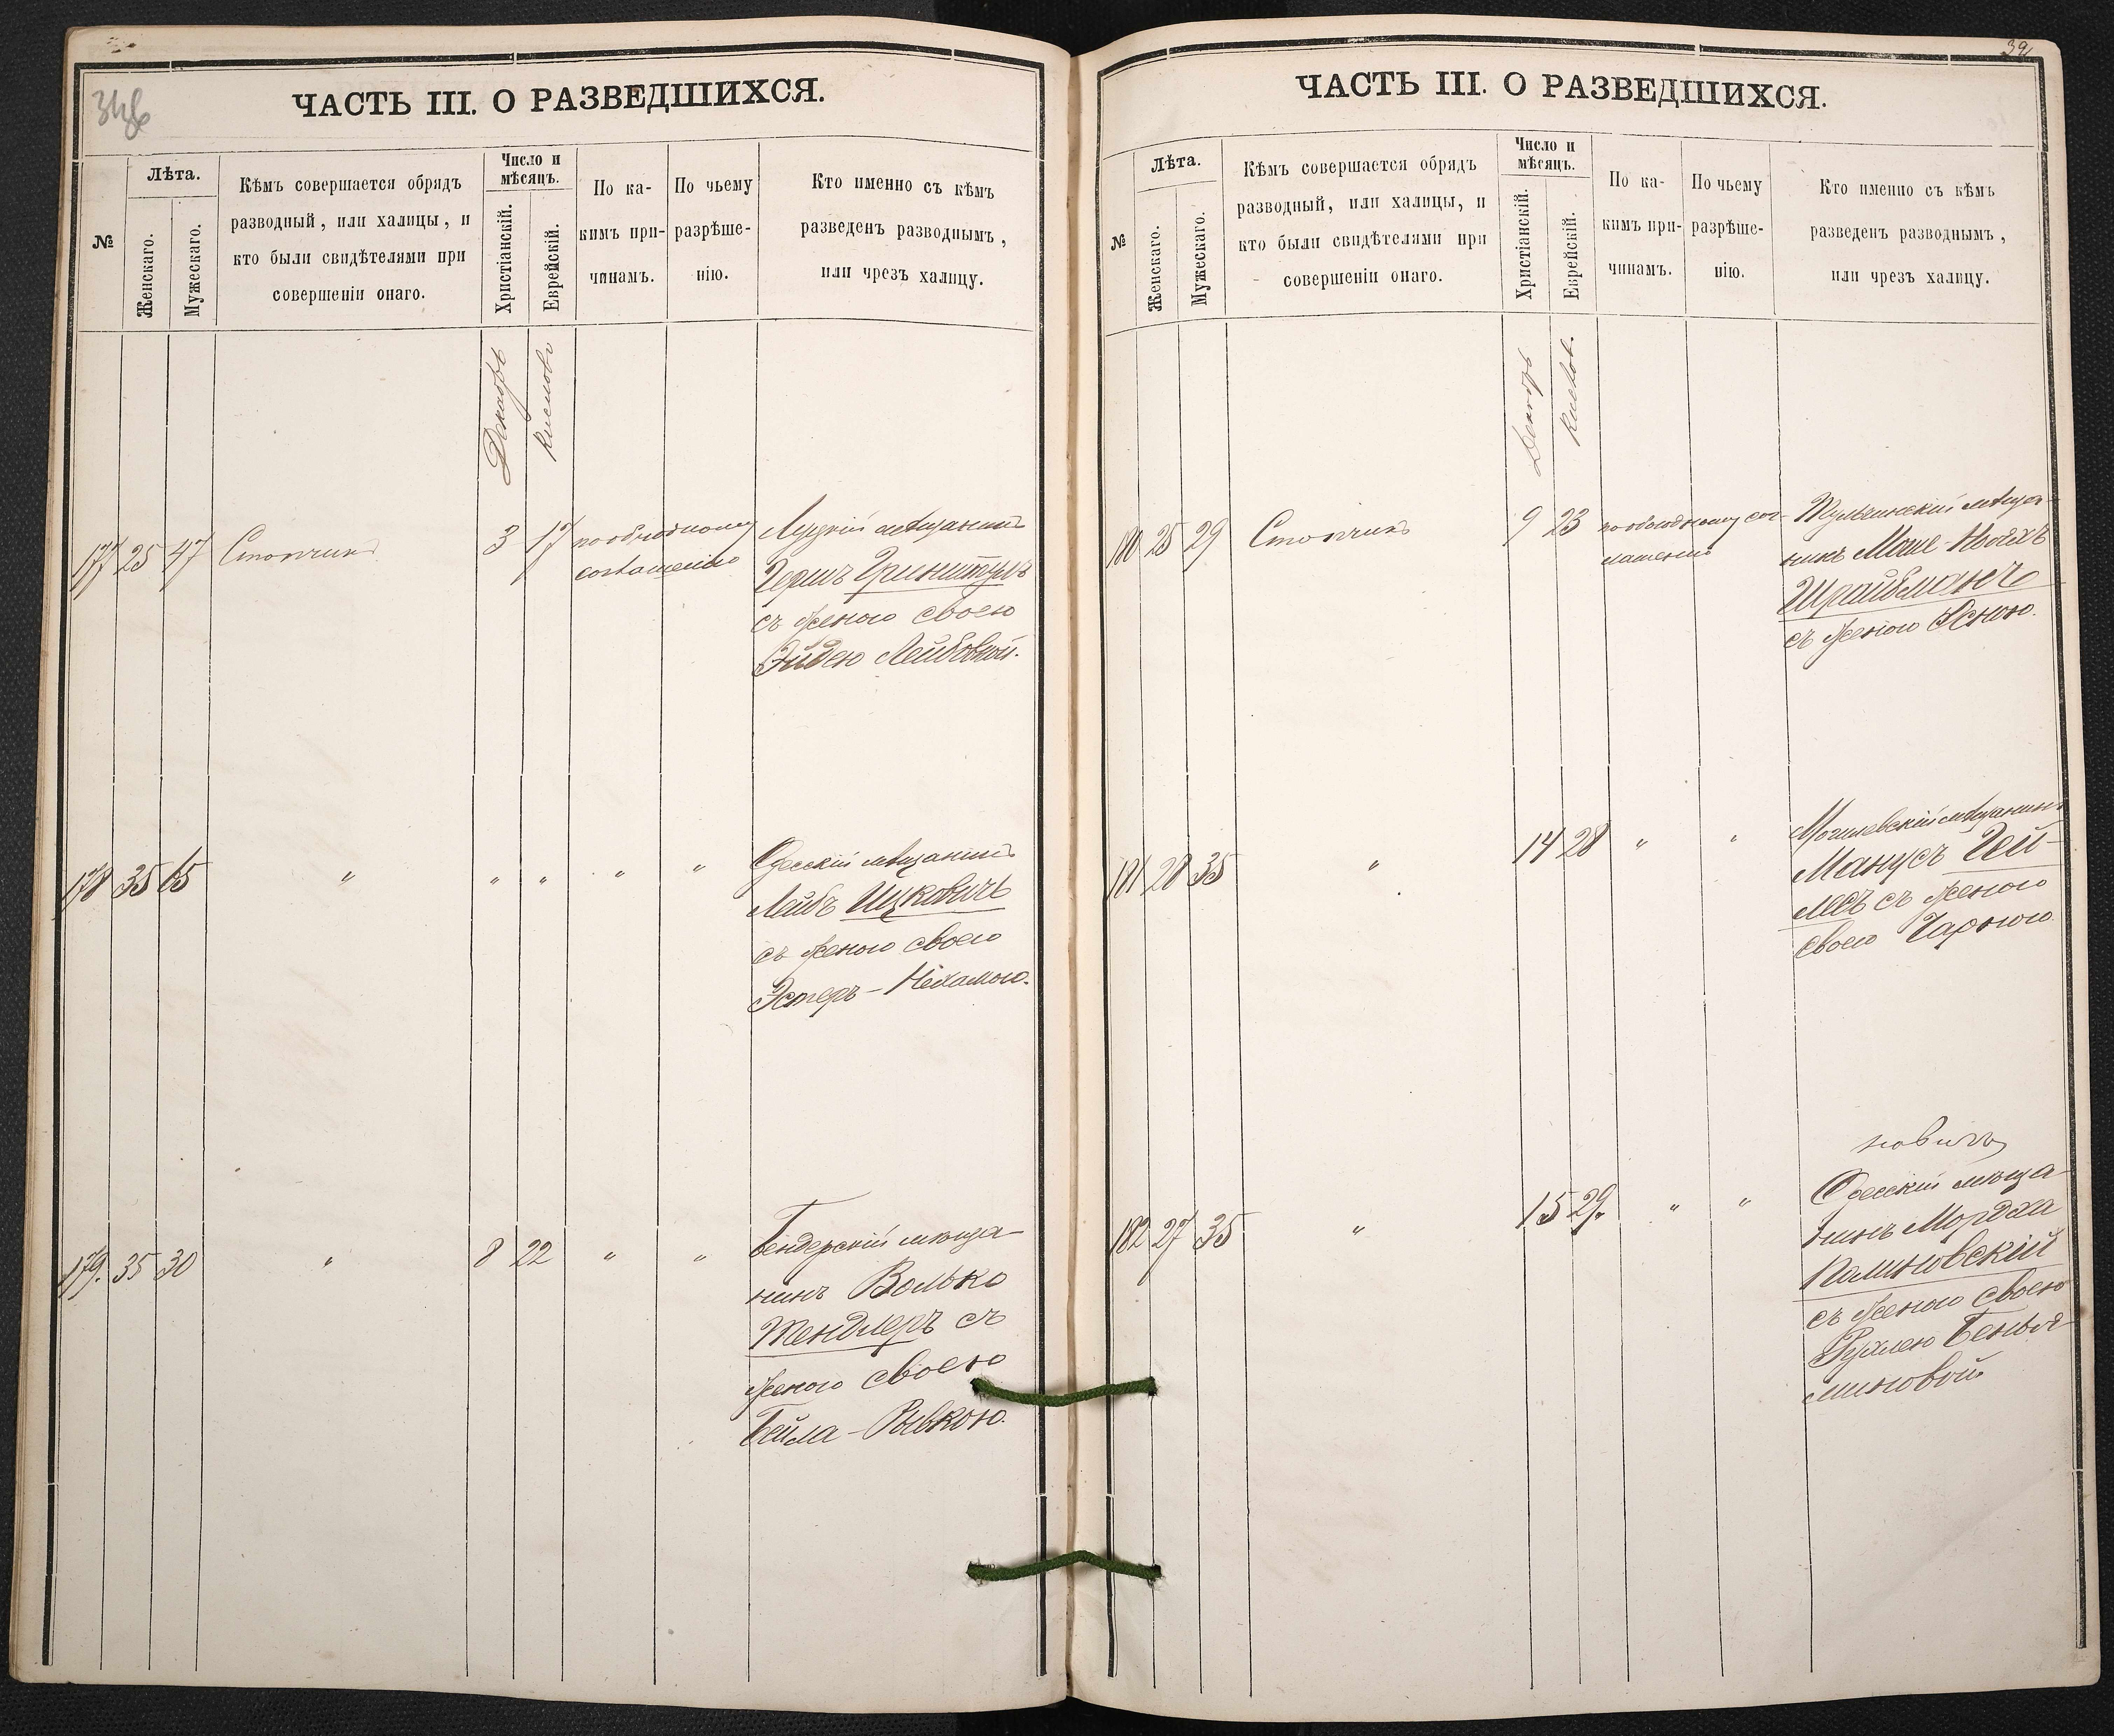 ЧАСТЬ III. О РАЗВЕДШИХСЯ.
№
Лѣта.
Женскаго.
Мужескаго.
Кѣмъ совершается обрядъ
разводный, или халицы, и
кто были свидѣтелями при
совершеніи онаго.
Число и
мѣсяцъ.
Христіанскій.
Еврейскій.
По ка-
кимъ при-
чинамъ.
По чьему
разрѣше-
нію.
Кто именно съ кѣмъ
разведенъ разводнымъ,
или чрезъ халицу.
Декабрь
Кисловъ
177 25 47 Столчикъ 3 17 по обоюдному
соглашенію
Луцкій мѣщанинъ
Гершъ Гринштулъ
съ женою своею
Эйдею Лейбовной.
178 35 65 " " " " " Одесскій мѣщанинъ
Лейбъ Ицковичъ
съ женою своею
Эстеръ-Нехамою.
179. 35 30 " 8 22 " " Бендерскій мѣща-
нинъ Волько
Тендлеръ съ
женою своею
Бейла-Рывкою.
39
ЧАСТЬ III. О РАЗВЕДШИХСЯ.
№
Лѣта.
Женскаго.
Мужескаго.
Кѣмъ совершается обрядъ
разводный, или халицы, и
кто были свидѣтелями при
совершеніи онаго.
Число и
мѣсяцъ.
Христіанскій.
Еврейскій.
По ка-
кимъ при-
чинамъ.
По чьему
разрѣше-
нію.
Кто именно съ кѣмъ
разведенъ разводнымъ,
или чрезъ халицу.
Декабрь
Кислов.
180 25 29 Столчикъ 9 23 по обоюдному сог-
лашенію
Тульчинскій мѣща-
нинъ Моше-Нойехъ
Шрайбманъ
съ женою Эсною.
181 28 35 " 14 28 " " Могилевскій мѣщанинъ
Манусъ Гей-
съ женою
своею Чарною
новичъ
182 27 35 " 15 29. " " Одесскій мѣща-
нинъ Мордха
Калиновскій
съ женою своею
Рухлею Бенья-
миновой